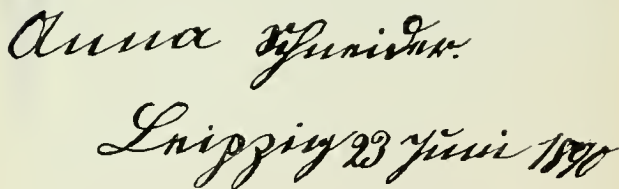 Anna Schneider.
Leipzig 23 Juni 1890